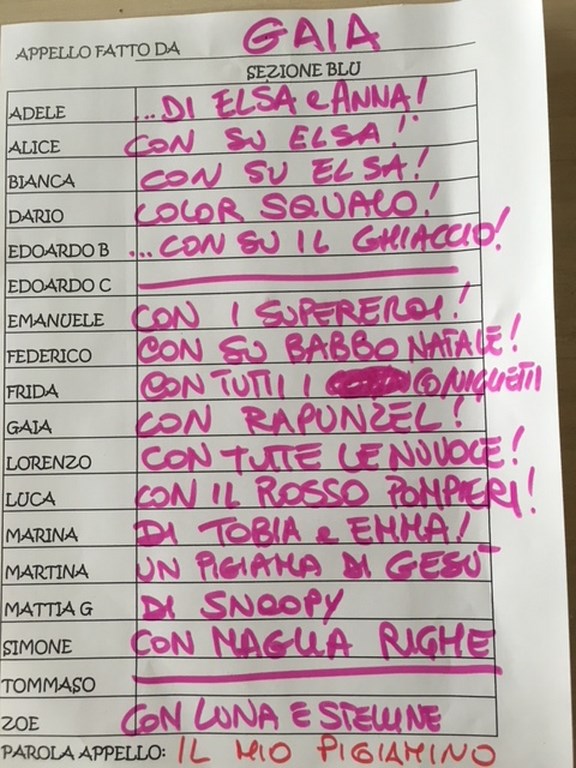 APPELLO FATTO DA GAIA
SEZIONE BLU
ADELE ...DI ELSA e ANNA!
ALICE CON SU ELSA!
BIANCA CON SU ELSA!
DARIO COLOR SQUALO!
EDOARDO B ...CON SU IL GHIACCIO!
EDOARDO C
EMANUELE CON I SUPEREROI!
FEDERICO CON SU BABBO NATALE!
FRIDA CON TUTTI I CONIGLIETTI
GAIA CON RAPUNZEL!
LORENZO CON TUTTE LE NUVOLE!
LUCA CON IL ROSSO POMPIERI!
MARINA DI TOBIA e EMMA!
MARTINA UN PIGIAMA DI GESÙ
MATTIA G DI SNOOPY
SIMONE CON MAGLIA RIGHE
TOMMASO
ZOE CON LUNA E STELLINE
PAROLA APPELLO: IL MIO PIGIAMINO